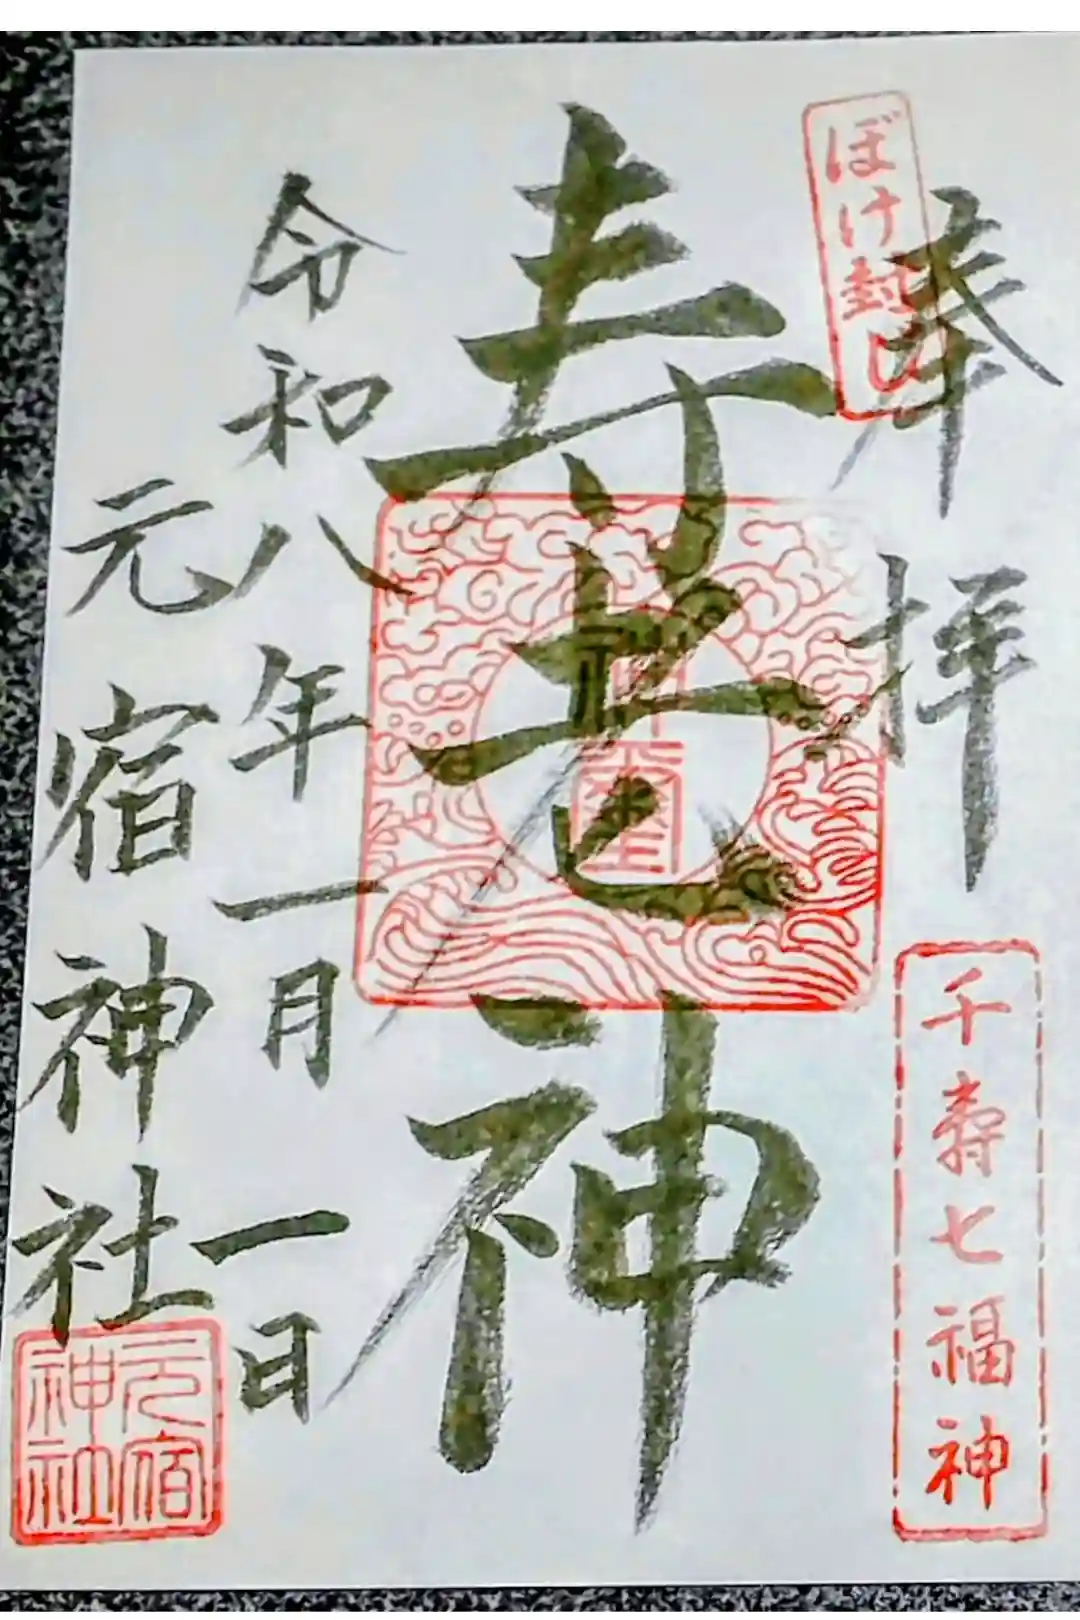 ぼけ封じ
奉拝
千壽七福神
寿老神
令和八年一月一日
元宿神社
元宿神社